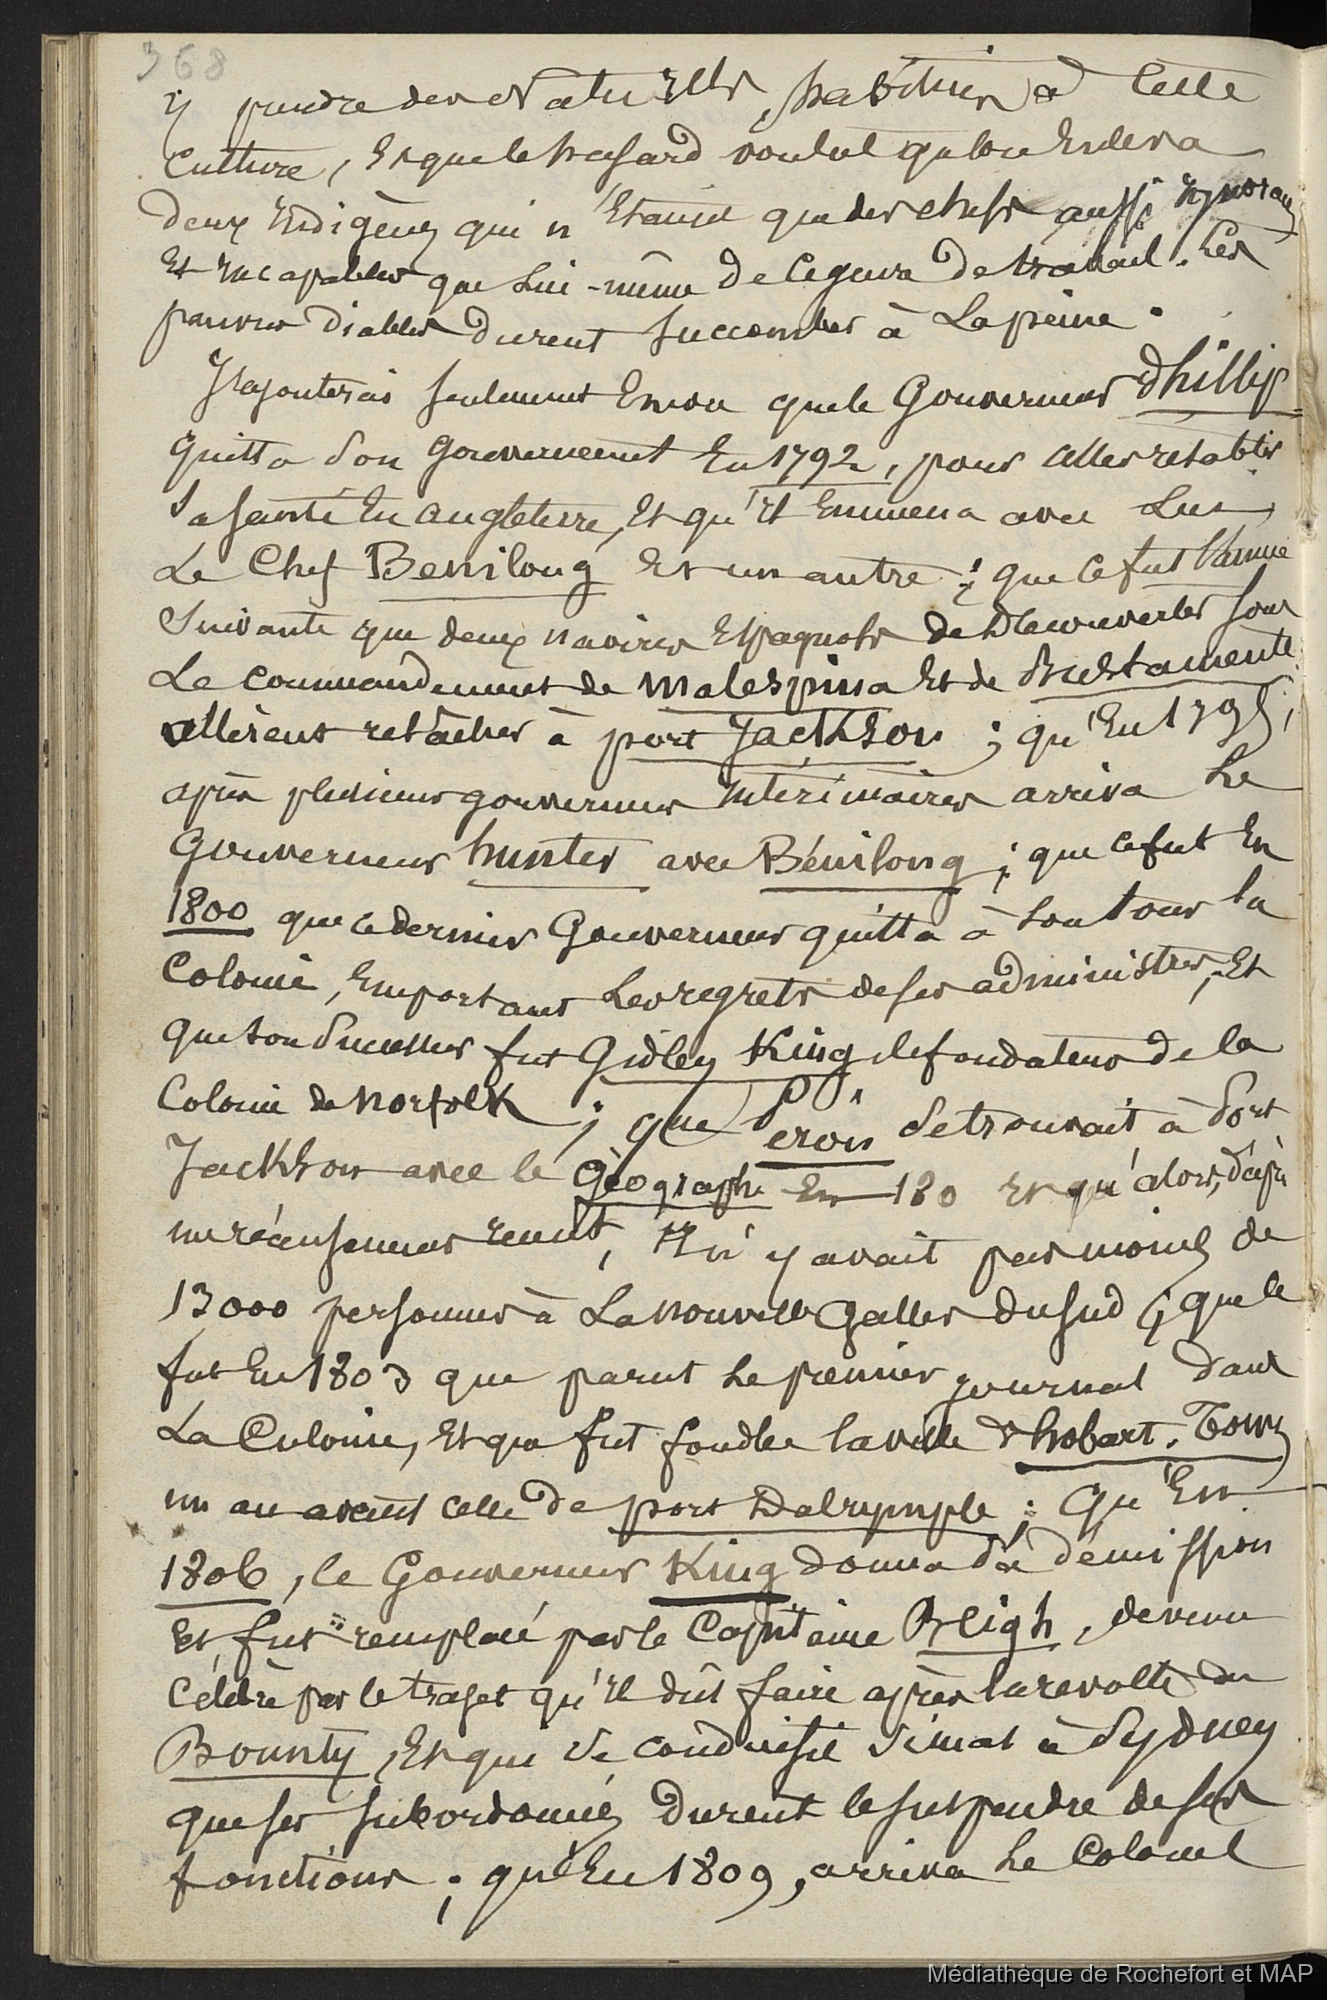 368
y prendre des Naturells, habitués à cette
Culture, Et que le hasard voulut qu'on Enleva
deux Indigènes qui n'Etaient que des chefs aussi Ignorans
Et Incapables que Lui-même de ce genre de travail. Les
pauvres Diables durent succomber à La peine.
J'rajouterai seulement Encore que le Gouverneur Phillip
quitta son gouvernement En 1792, pour aller rétablir
sa santé En angleterre, Et qu'il Emmena avec Lui
Le Chef Bennilong Et un autre ; que ce fut l'année
Suivante que deux navires Espagnols de Découvertes sous
Le commandement de Malespina Et de Bustamente
allèrent relâcher à port Jackson ; qu'En 1795,
après plusieurs gouverneurs Intérimaires arriva Le
Gouverneur hunter avec Bénilong ; que ce fut En
1800 que ce dernier Gouverneur quitta à son tour la
Colonie, Emportant Les regrets de ses administrés, Et
que son Successeur fut Gidley King le fondateur de la
Colonie de Norfolk ; que Pérôn se trouvait à Port
Jackson avec le Géographe En 180 Et qu'alors, d'après
un récensement, Il n'y avait pas moins de
13000 personnes à La Nouvelle Galles du Sud ; que ce
fut En 1803 que parut Le premier journal dans
La Colonie, Et que fut fondée la ville d'hobart-Town
un an avant celle de port Dalrymple ; Qu'En
1806, le Gouverneur King donna sa démission
Et fut remplacé par le Capitaine Bligh, devenu
Célèbre par le trajet qu'Il dût faire après la révolte du
Bounty, Et qui se conduisit si mal à Sydney
que ses subordonnés durent le suspendre de ses
fonctions ; qu'En 1809, arriva Le Colonel
Médiathèque de Rochefort et MAP